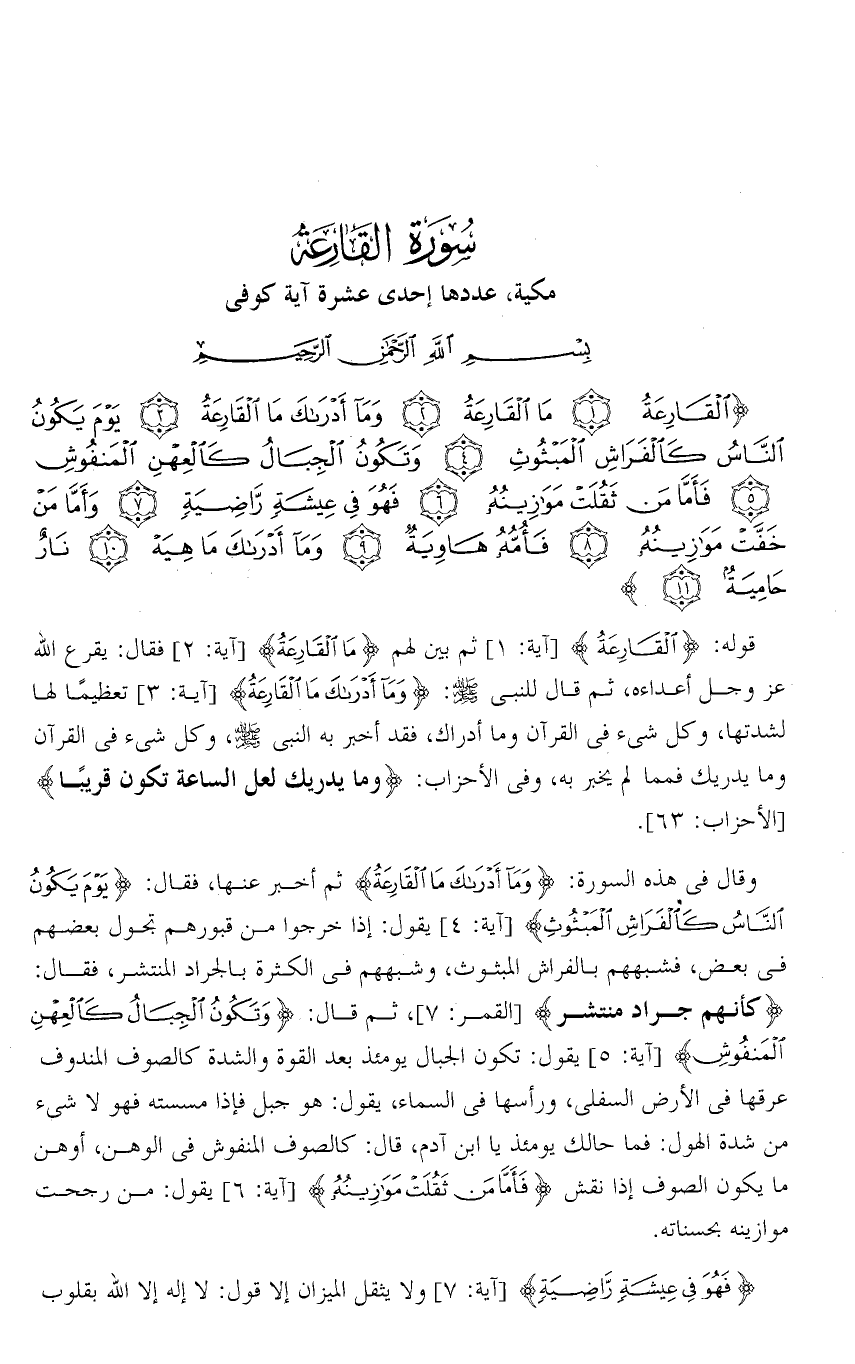 سُورَةُ القَارِعَة
مكية، عددها إحدى عشرة آية كوفى
بِسْمِ ٱللَّهِ ٱلرَّحْمَٰنِ ٱلرَّحِيمِ
﴿ٱلْقَارِعَةُ ۝١ مَا ٱلْقَارِعَةُ ۝٢ وَمَآ أَدْرَىٰكَ مَا ٱلْقَارِعَةُ ۝٣ يَوْمَ يَكُونُ
ٱلنَّاسُ كَٱلْفَرَاشِ ٱلْمَبْثُوثِ ۝٤ وَتَكُونُ ٱلْجِبَالُ كَٱلْعِهْنِ ٱلْمَنفُوشِ
۝٥ فَأَمَّا مَن ثَقُلَتْ مَوَٰزِينُهُۥ ۝٦ فَهُوَ فِى عِيشَةٍ رَّاضِيَةٍ ۝٧ وَأَمَّا مَنْ
خَفَّتْ مَوَٰزِينُهُۥ ۝٨ فَأُمُّهُۥ هَاوِيَةٌ ۝٩ وَمَآ أَدْرَىٰكَ مَا هِيَهْ ۝١٠ نَارٌ
حَامِيَةٌۢ ۝١١ ﴾
قوله: ﴿ٱلْقَارِعَةُ﴾ [آية: ١] ثم بين لهم ﴿مَا ٱلْقَارِعَةُ﴾ [آية: ٢] فقال: يقرع الله
عز وجل أعداءه، ثم قال للنبى ﷺ: ﴿وَمَآ أَدْرَىٰكَ مَا ٱلْقَارِعَةُ﴾ [آية: ٣] تعظيمًا لها
لشدتها، وكل شىء فى القرآن وما أدراك، فقد أخبر به النبى ﷺ، وكل شىء فى القرآن
وما يدريك فمما لم يخبر به، وفى الأحزاب: ﴿وما يدريك لعل الساعة تكون قريبًا﴾
[الأحزاب: ٦٣].
وقال فى هذه السورة: ﴿وَمَآ أَدْرَىٰكَ مَا ٱلْقَارِعَةُ﴾ ثم أخبر عنها، فقال: ﴿يَوْمَ يَكُونُ
ٱلنَّاسُ كَٱلْفَرَاشِ ٱلْمَبْثُوثِ﴾ [آية: ٤] يقول: إذا خرجوا من قبورهم تجول بعضهم
فى بعض، فشبههم بالفراش المبثوث، وشبههم فى الكثرة بالجراد المنتشر، فقال:
﴿كأنهم جراد منتشر﴾ [القمر: ٧]، ثم قال: ﴿وَتَكُونُ ٱلْجِبَالُ كَٱلْعِهْنِ
ٱلْمَنفُوشِ﴾ [آية: ٥] يقول: تكون الجبال يومئذ بعد القوة والشدة كالصوف المندوف
عرقها فى الأرض السفلى، ورأسها فى السماء، يقول: هو جبل فإذا مسسته فهو لا شىء
من شدة الهول: فما حالك يومئذ يا ابن آدم، قال: كالصوف المنفوش فى الوهن، أوهن
ما يكون الصوف إذا نقش ﴿فَأَمَّا مَن ثَقُلَتْ مَوَٰزِينُهُۥ﴾ [آية: ٦] يقول: من رجحت
موازينه بحسناته.
﴿فَهُوَ فِى عِيشَةٍ رَّاضِيَةٍ﴾ [آية: ٧] ولا يثقل الميزان إلا قول: لا إله إلا الله بقلوب